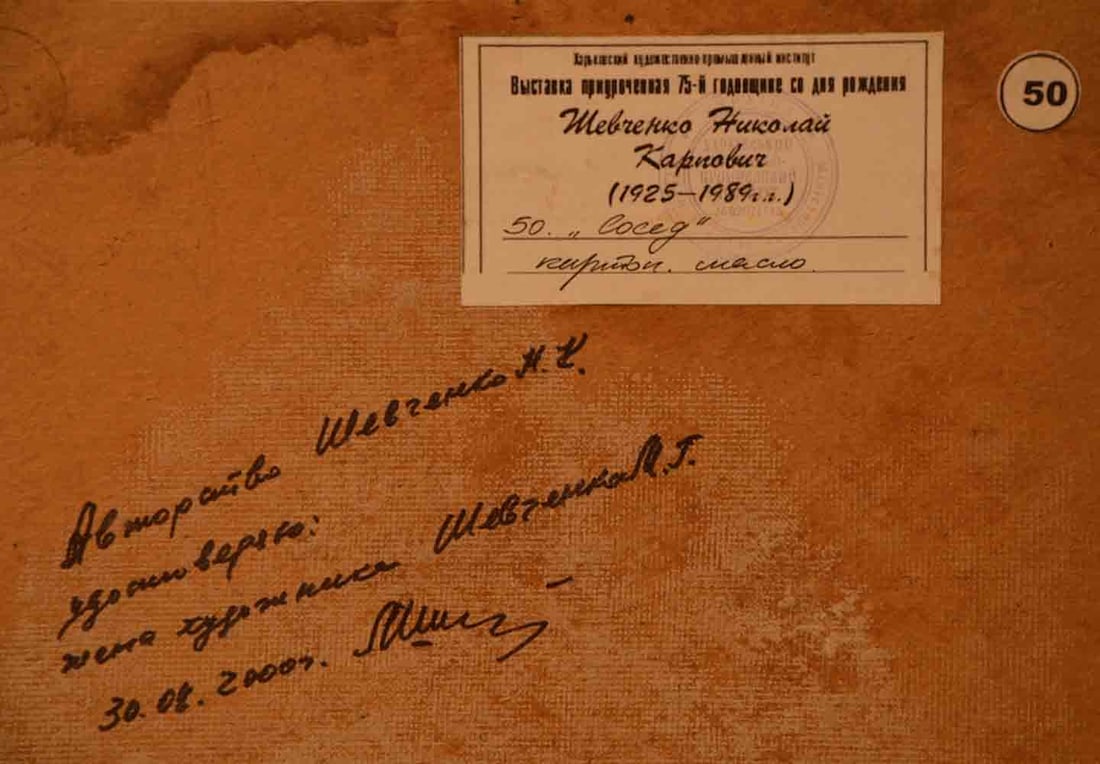 Харьковский художественно-промышленный институт
Выставка приуроченная 75-й годовщине со дня рождения
Шевченко Николай
Карпович
(1925—1989г.г.)
50. „Сосед“
картон. масло.
50
Авторство Шевченко Н.К.
удостоверяю:
жена художника Шевченко Л.Г.
30.08.2000г.